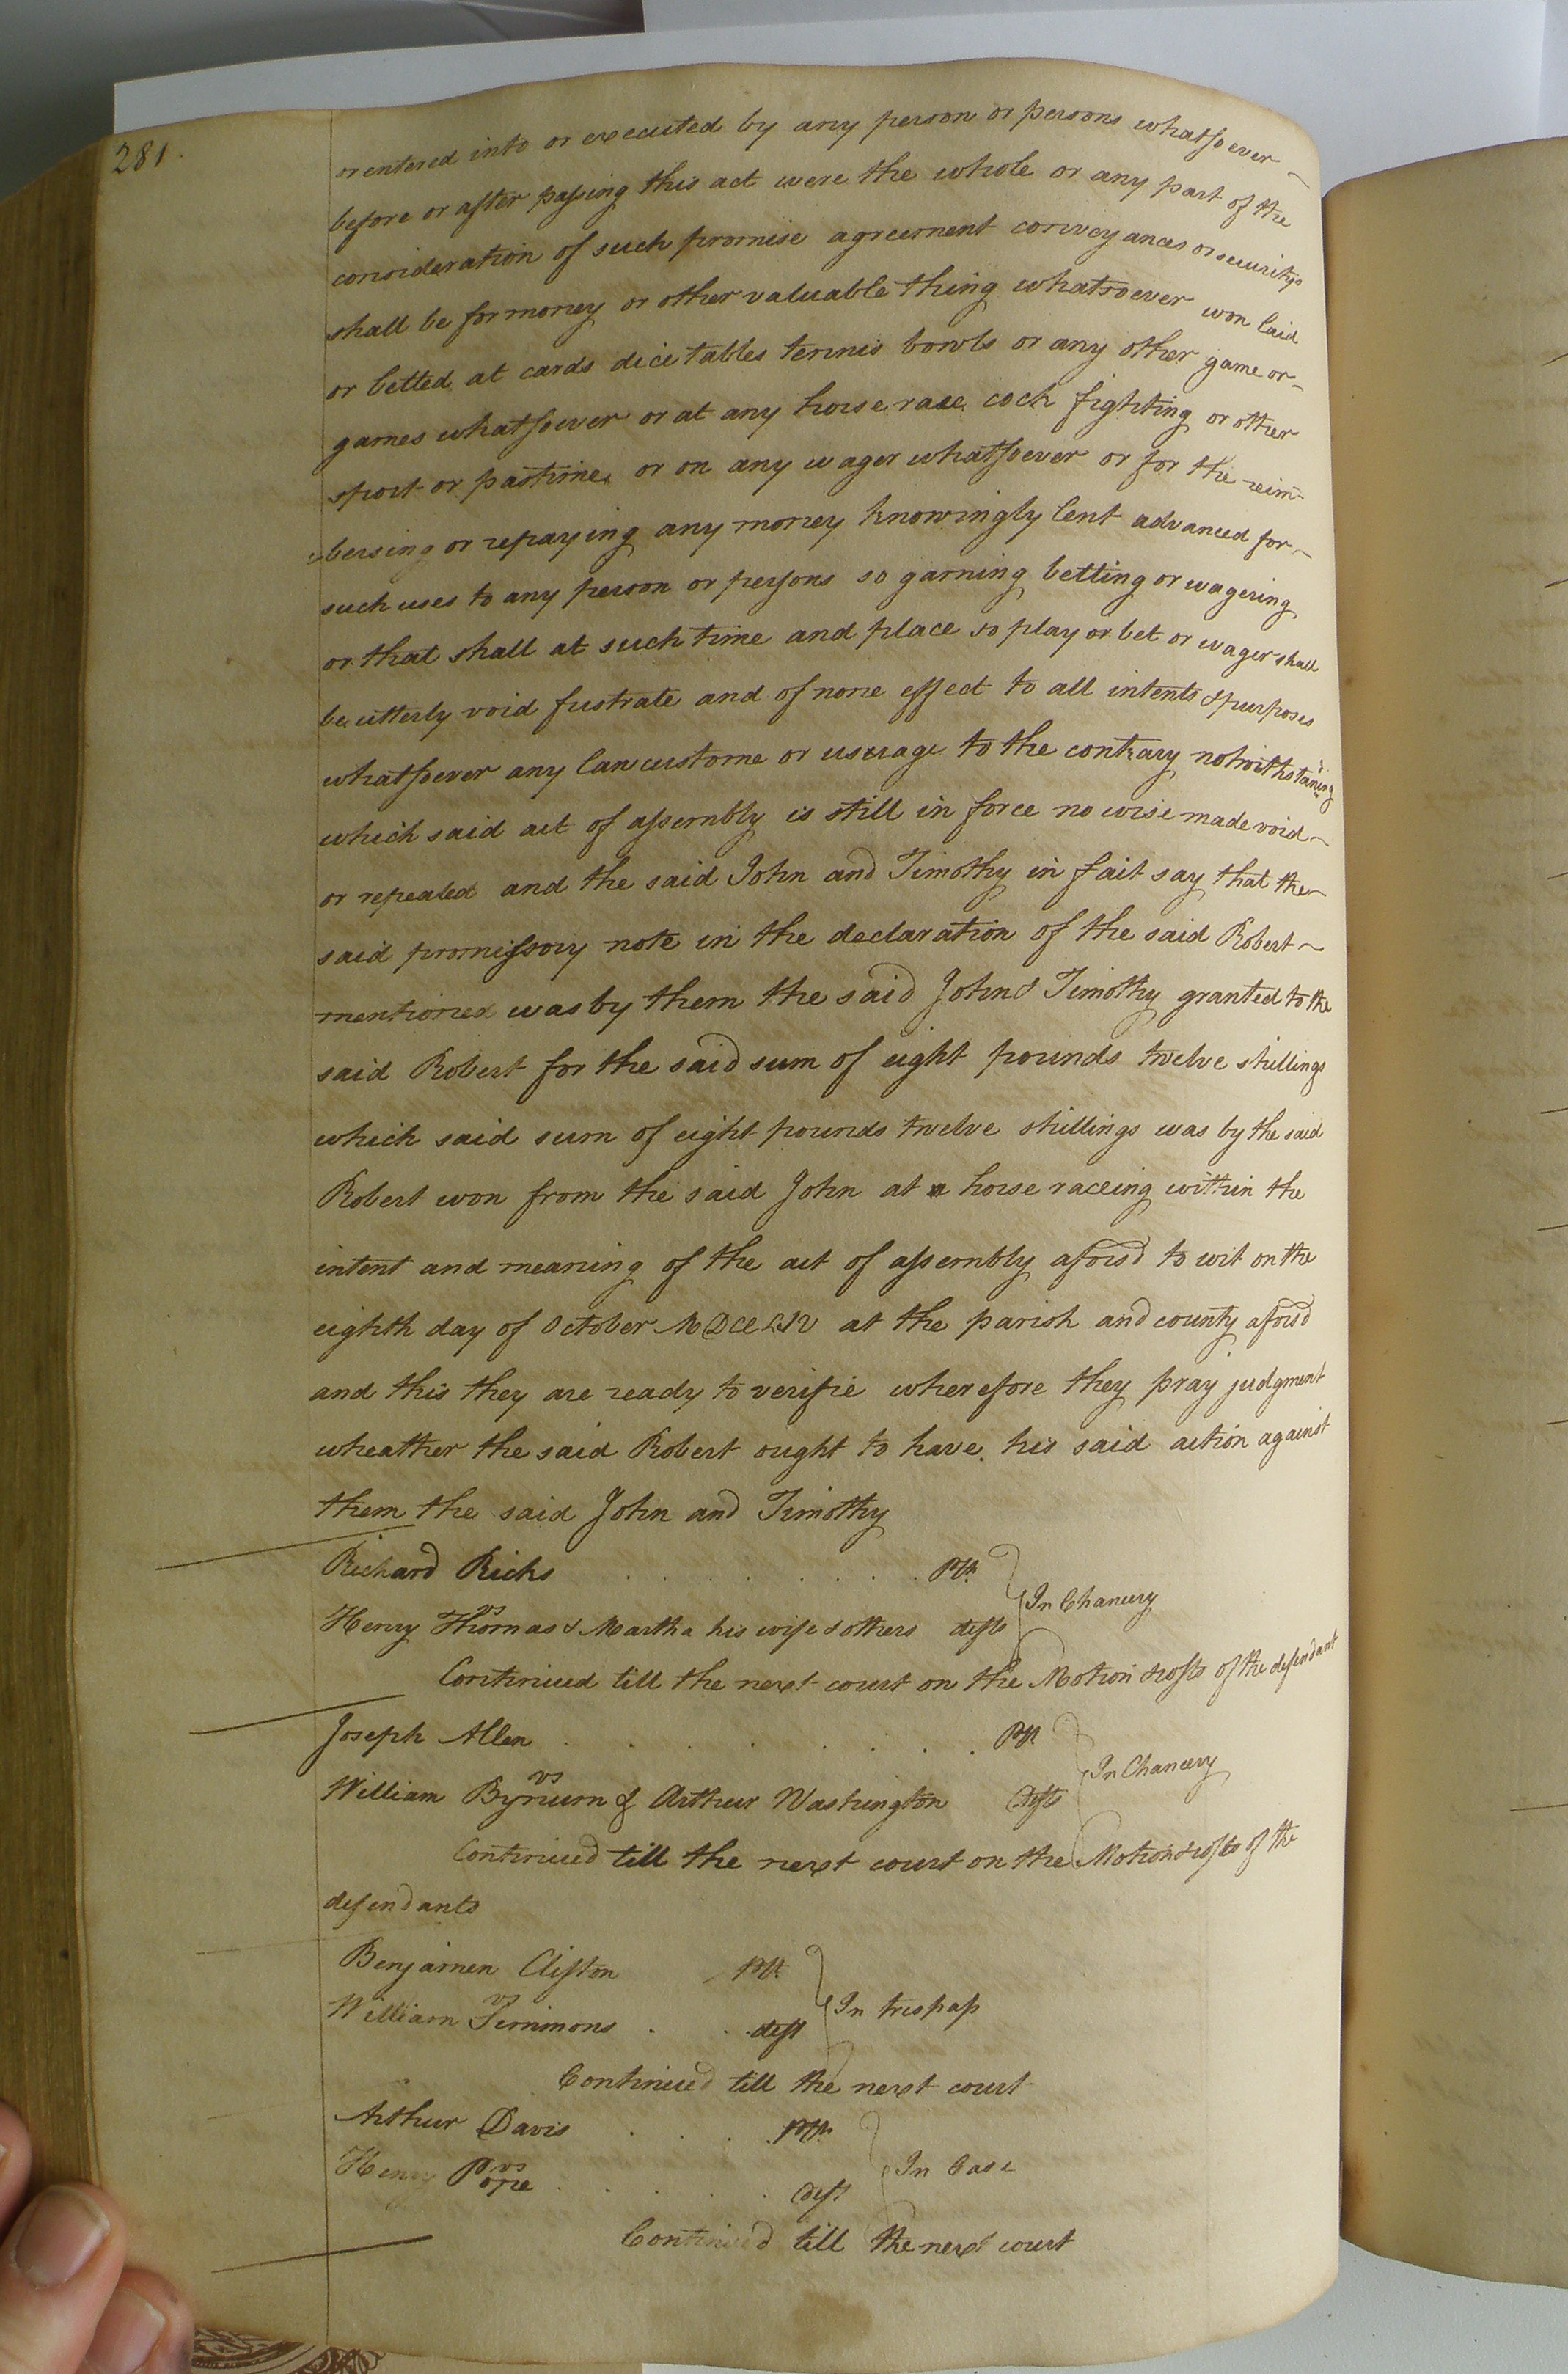 281.
or entered into or executed by any person or persons whatsoever
before or after passing this act were the whole or any part of the
consideration of such promise agreement conveyances or securitys
shall be for money or other valuable thing whatsoever won laid
or betted at cards dice tables tennis bowls or any other game or
games whatsoever or at any horse race cock fighting or other
sport or pastime or on any wager whatsoever or for the reim-
bersing or repaying any money knowingly lent advanced for
such uses to any person or persons so gaming betting or wagering
or that shall at such time and place so play or bet or wager shall
be utterly void fustrate and of none effect to all intents & purposes
whatsoever any law custome or useage to the contrary notwithstaning
which said act of assembly is still in force no wise made void
or repealed and the said John and Timothy in fait say that the
said promissory note in the declaration of the said Robert
mentioned was by them the said John & Timothy granted to the
said Robert for the said sum of eight pounds twelve shillings
which said sum of eight pounds twelve shillings was by the said
Robert won from the said John at a horse raceing within the
intent and meaning of the act of assembly aforsd to wit on the
eighth day of October at the parish and county aforsd
and this they are ready to verifie wherefore they pray judgment
wheather the said Robert ought to have his said action against
them the said John and Timothy
Richard Ricks . . . . . . . Plt.
vs In Chancery
Henry Thomas & Martha his wife & others defts
Continued till the next court on the Motion & costs of the defendant
Joseph Allen . . . . . . . Plt.
vs In Chancery
William Bynum & Arthur Washington Defts
Continued till the next court on the Motion & costs of the
defendants
Benjamen Clifton Plt.
vs In trespass
William Simmons . . . deft
Continued till the next court
Arthur Davis . . . Plt.
vs In Case
Henry Pope . . . . . Deft.
Continued till the next court